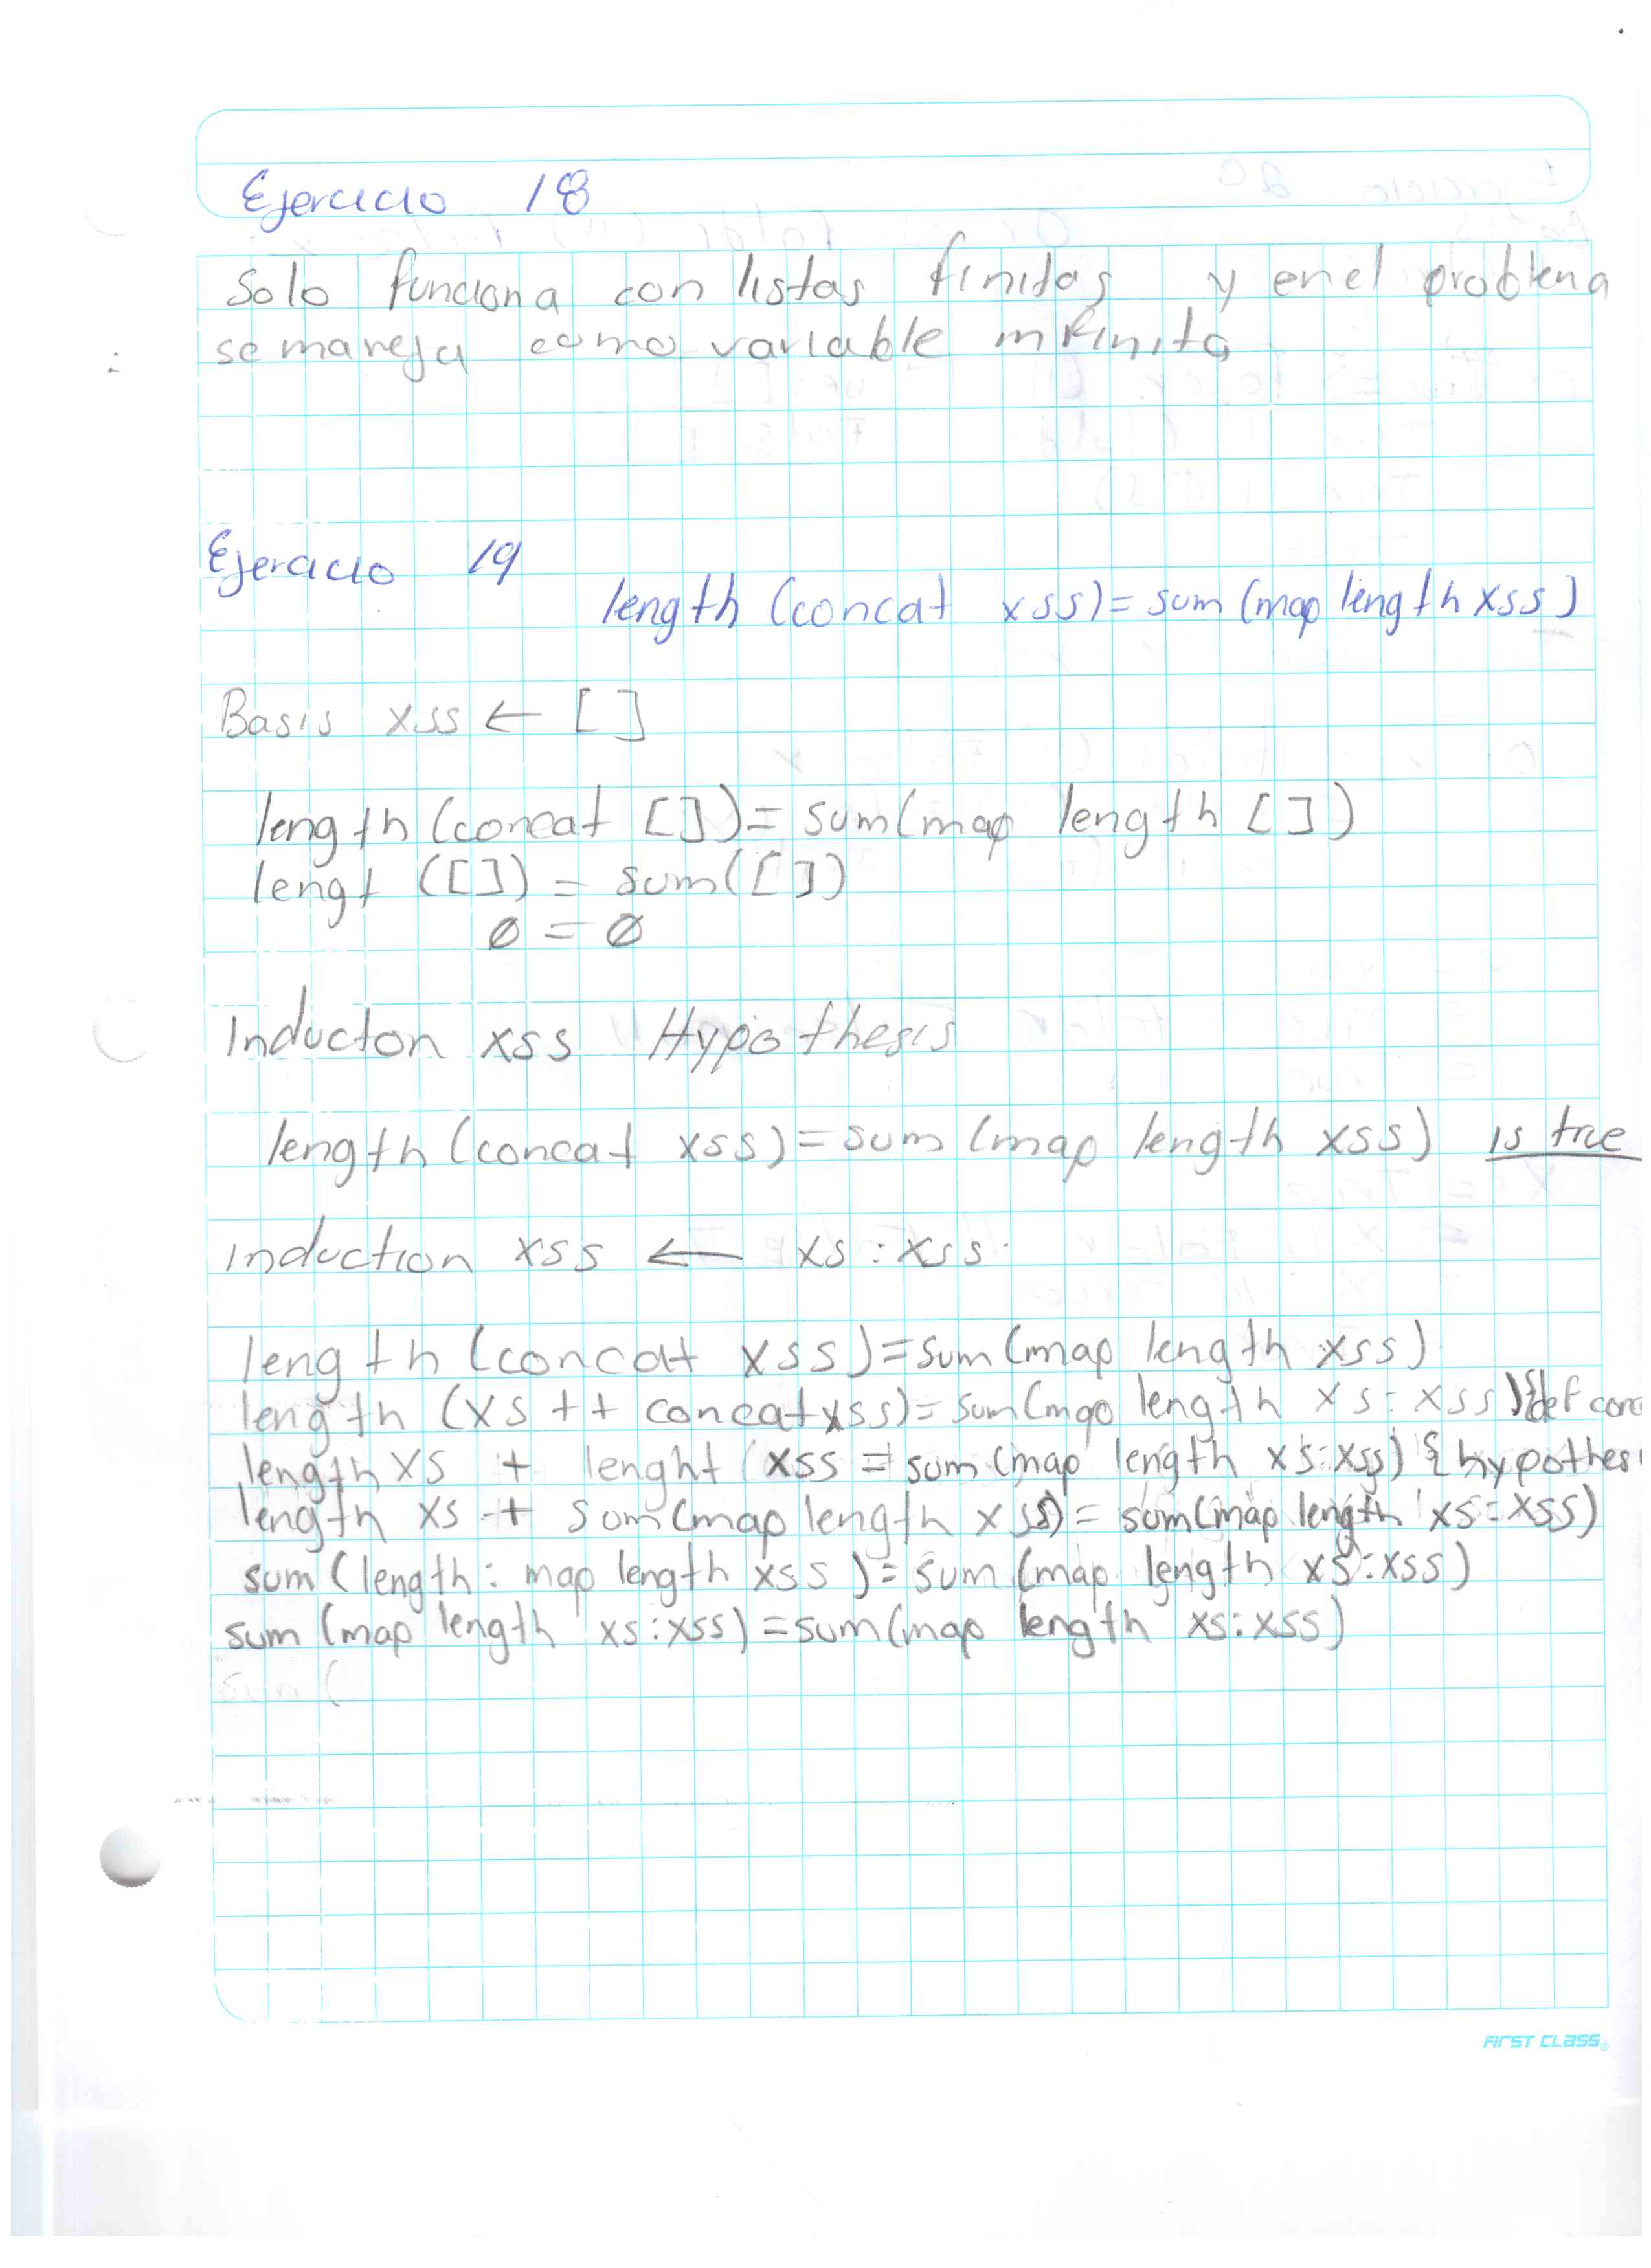 Ejercicio 18
Solo funciona con listas finitas y en el problema
se maneja como variable infinita
Ejercicio 19
length (concat xss) = sum (map length xss)
Basis xss ← []
length (concat []) = sum (map length [])
lengt ([]) = sum([])
0 = 0
Inducton xss Hypothesis
length (concat xss) = sum (map length xss) is true
induction xss ← xs : xss
length (concat xss) = sum (map length xss)
length (xs ++ concat xss) = sum (map length xs : xss) {def conc
length xs + lenght (xss = sum (map length xs : xss) { hypothesi
length xs + sum (map length xss) = sum (map length xs : xss)
sum (length : map length xss) = sum (map length xs : xss)
sum (map length xs : xss) = sum (map length xs : xss)
sum (
FIRST CLASS